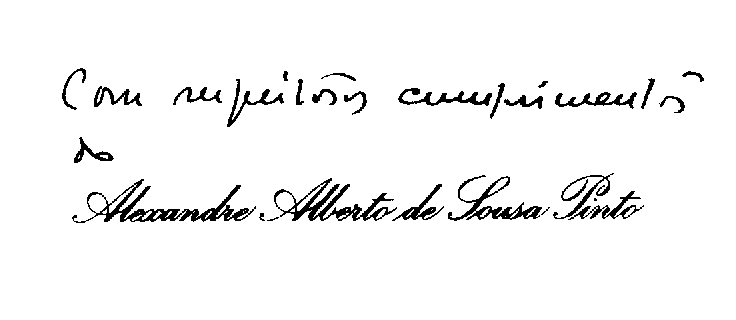 Com respeitosos cumprimentos
do
Alexandre Alberto de Sousa Pinto